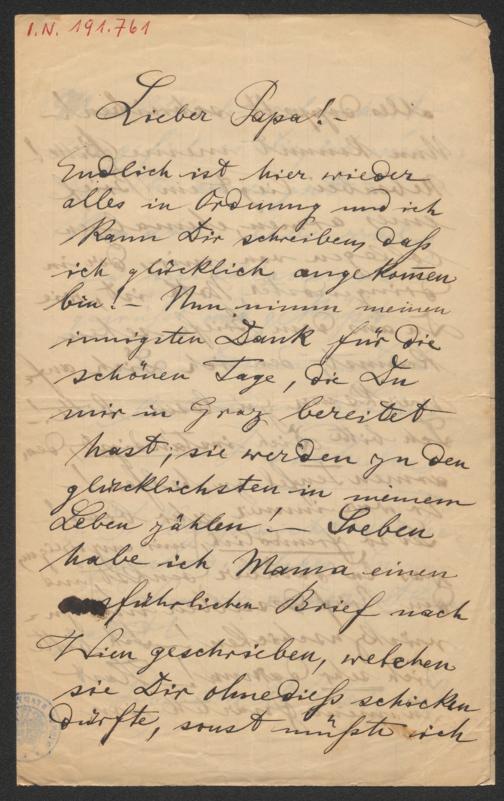 I.N. 191.761
Lieber Papa! -
Endlich ist hier wieder
alles in Ordnung und ich
kann Dir schreiben, daß
ich glücklich angekom̅en
bin! - Nun nimm meinen
innigsten Dank für die
schönen Tage, die Du
mir in Graz bereitet
hast, sie werden zu den
glücklichsten in meinem
Leben zählen! - Soeben
habe ich Mama einen
ausführlichen Brief nach
Wien geschrieben, welchen
sie Dir ohnedieß schicken
dürfte, sonst müßte ich